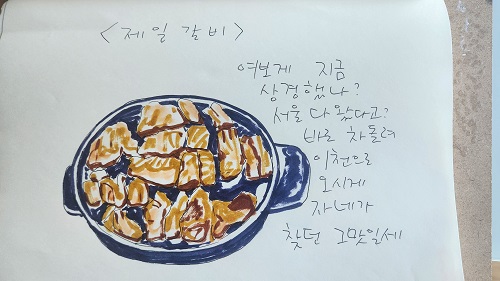 <제일갈비>
여보게 지금
상경했나?
서울 다 왔다고?
바로 차돌려
이천으로
오시게
자네가
찾던 그맛일세